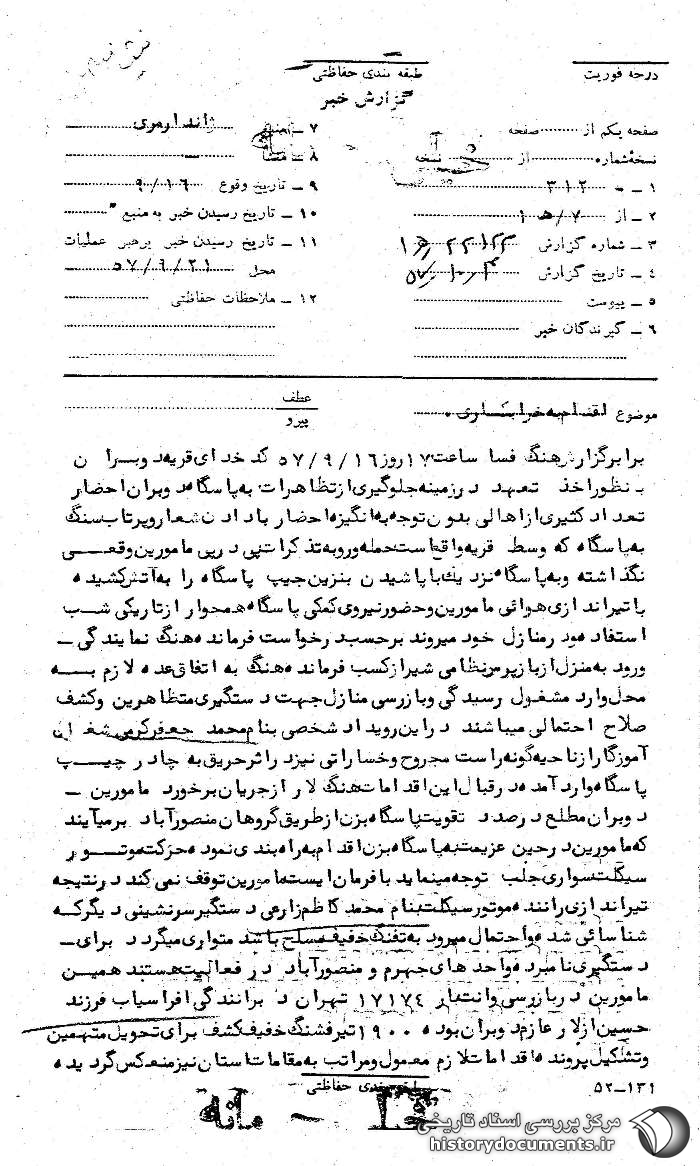 درجه فوریت
طبقه بندی حفاظتی
گزارش خبر
صفحه یکم از صفحه
نسخه شماره از نسخه
۱ ــ به ۳۱۲
۲ ــ از ۷/ھ ۱
۳ ــ شماره گزارش
۴ ــ تاریخ گزارش
۵ ــ پیوست
۶ ــ گیرندگان خبر
۷ ــ منبع ژاندارمری
۸ ــ منشأ ــ
۹ ــ تاریخ وقوع ۹/۱۶
۱۰ ــ تاریخ رسیدن خبر به منبع "
۱۱ ــ تاریخ رسیدن خبر برهبر عملیات
محل ۵۷/۹/۲۱
۱۲ ــ ملاحظات حفاظتی
عطف
پیرو
موضوع اقدام به خرابکاری .
برابر گزارش هنگ فسا ساعت ۱۷ روز ۵۷/۹/۱۶ کدخدای قریه دوبران
بمنظور اخذ تعهد در زمینه جلوگیری از تظاهرات به پاسگاه دوبران احضار
تعداد کثیری از اهالی بدون توجه به انگیزه احضار با دادن شعار و پرتاب سنگ
به پاسگاه که وسط قریه واقع است حمله ور و به تذکرات پی در پی مامورین وقعی
نگذاشته و به پاسگاه نزدیک با پاشیدن بنزین جیپ پاسگاه را به آتش کشیده
با تیراندازی هوائی مامورین و حضور نیروی کمکی پاسگاه همجوار از تاریکی شب
استفاده و در منازل خود میروند برحسب درخواست فرمانده هنگ نمایندگی ــ
ورود به منزل از بازپرس نظامی شیراز کسب فرمانده هنگ به اتفاق عده لازم به
محل وارد مشغول رسیدگی و بازرسی منازل جهت دستگیری متظاهرین و کشف
صلاح احتمالی میباشند در این رویداد شخصی بنام محمد جعفر کرمی شغران
آموزگار از ناحیه گونه راست مجروح و خساراتی نیز در اثر حریق به چادر جیپ
پاسگاه وارد آمده در قبال این اقدامات هنگ لار از جریان برخورد مامورین ــ
دوبران مطلع درصدد تقویت پاسگاه بزن از طریق گروهان منصورآباد برمیآیند
که مامورین در حین عزیمت به پاسگاه بزن اقدام به راه بندی نموده حرکت موتور
سیکلت سواری جلب توجه مینماید با فرمان ایست مامورین توقف نمی کند در نتیجه
تیراندازی راننده موتور سیکلت بنام محمد کاظم زارعی دستگیر سرنشینی دیگر که
شناسائی شده و احتمال میرود به تفنگ خفیف مسلح باشد متواری میگردد برای ــ
دستگیری نامبرده واحدهای جهرم و منصورآباد در فعالیت هستند همین
مامورین در بازرسی وانت بار ۱۷۱۷۴ تهران د برانندگی افراسیاب فرزند
حسین از لار عازم دوبران بوده ۱۹۰۰ تیر فشنگ خفیف کشف برای تحویل متهمین
و تشکیل پرونده اقدامات لازم معمول و مراتب به مقامات استان نیز منعکس گردیده
۵۲ــ۱۳۱
طبقه بندی حفاظتی
مرکز بررسی اسناد تاریخی
historydocuments.ir